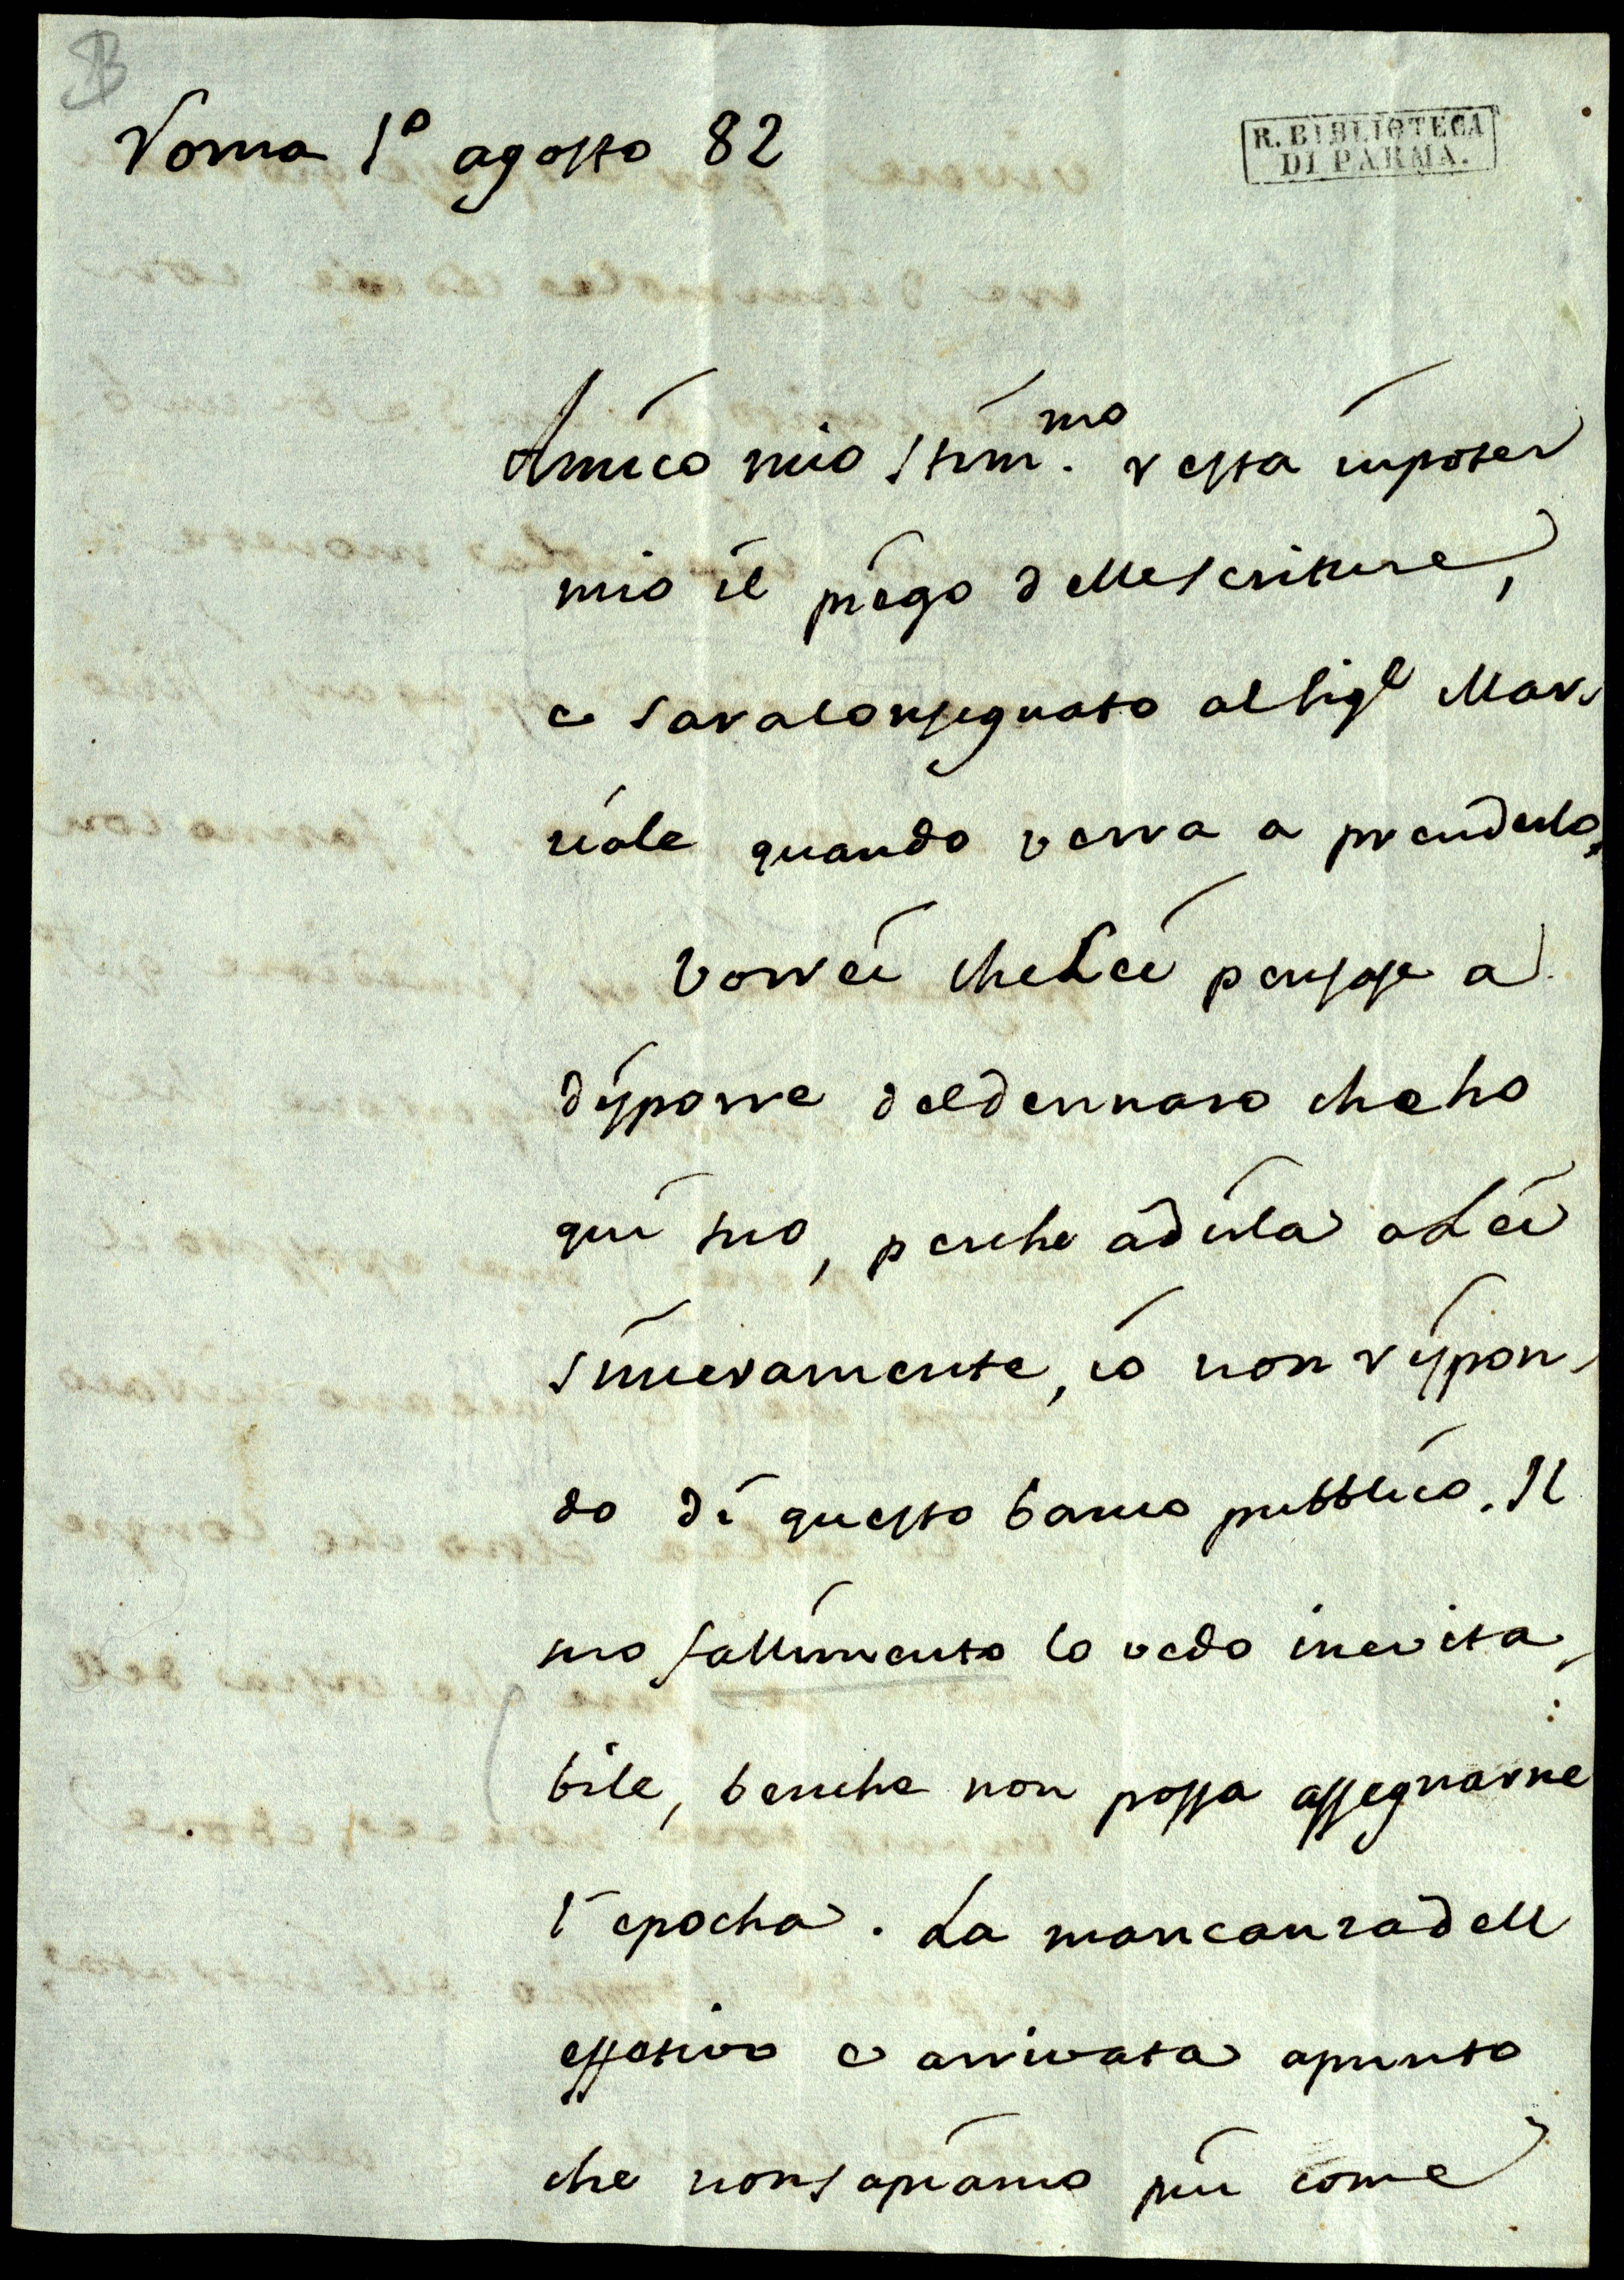 Roma 1º agosto 82
R. BIBLIOTECA
DI PARMA.
Amico mio Stim.mo resta in poter
mio il piego delle scritture,
e sara consegnato al Sigr Mar
ziale quando verra a prenderlo.
Vorrei che Lei pensasse a
disporre del dennaro che ho
qui suo, perche a dirla a Lei
sinceramente, io non rispon
do di questo banco pubblico. Il
suo fallimento lo vedo inevita
bile, benche non possa assegnarne
l'epocha. La mancanza dell
effetivo e arrivata a punto
che non sapiamo piu come